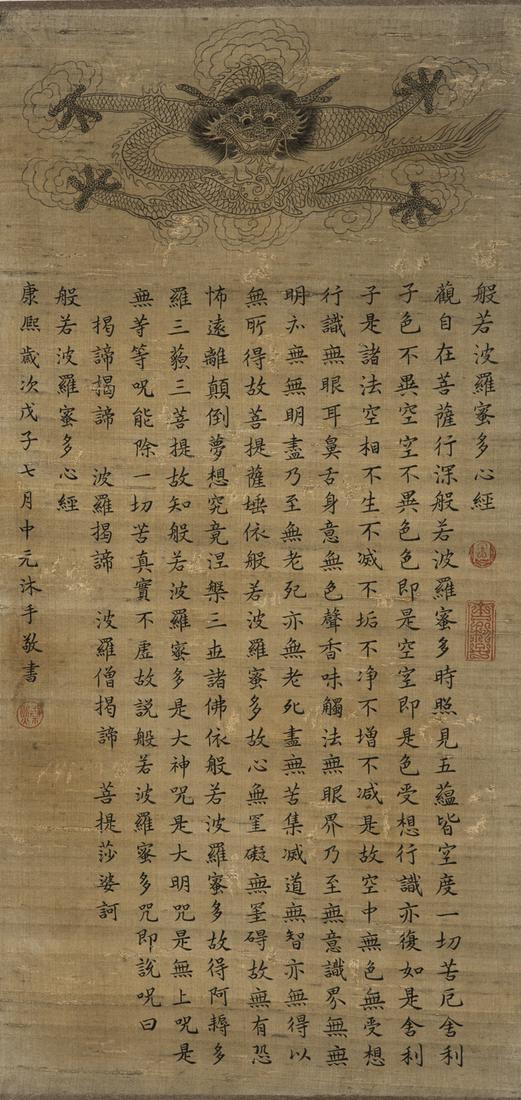 般若波羅蜜多心經
觀自在菩薩行深般若波羅蜜多時照見五蘊皆空度一切苦厄舍利
子色不異空空不異色色即是空空即是色受想行識亦復如是舍利
子是諸法空相不生不滅不垢不净不增不減是故空中無色無受想
行識無眼耳鼻舌身意無色聲香味觸法無眼界乃至無意識界無無
明亦無無明盡乃至無老死亦無老死盡無苦集滅道無智亦無得以
無所得故菩提薩埵依般若波羅蜜多故心無罣礙無罣碍故無有恐
怖遠離顛倒夢想究竟涅槃三世諸佛依般若波羅蜜多故得阿耨多
羅三藐三菩提故知般若波羅蜜多是大神咒是大明咒是無上咒是
無等等呪能除一切苦真實不虛故説般若波羅蜜多咒即說呪曰
揭諦揭諦 波羅揭諦 波羅僧揭諦 菩提莎婆訶
般若波羅蜜多心經
康熙歲次戊子七月中元沐手敬書